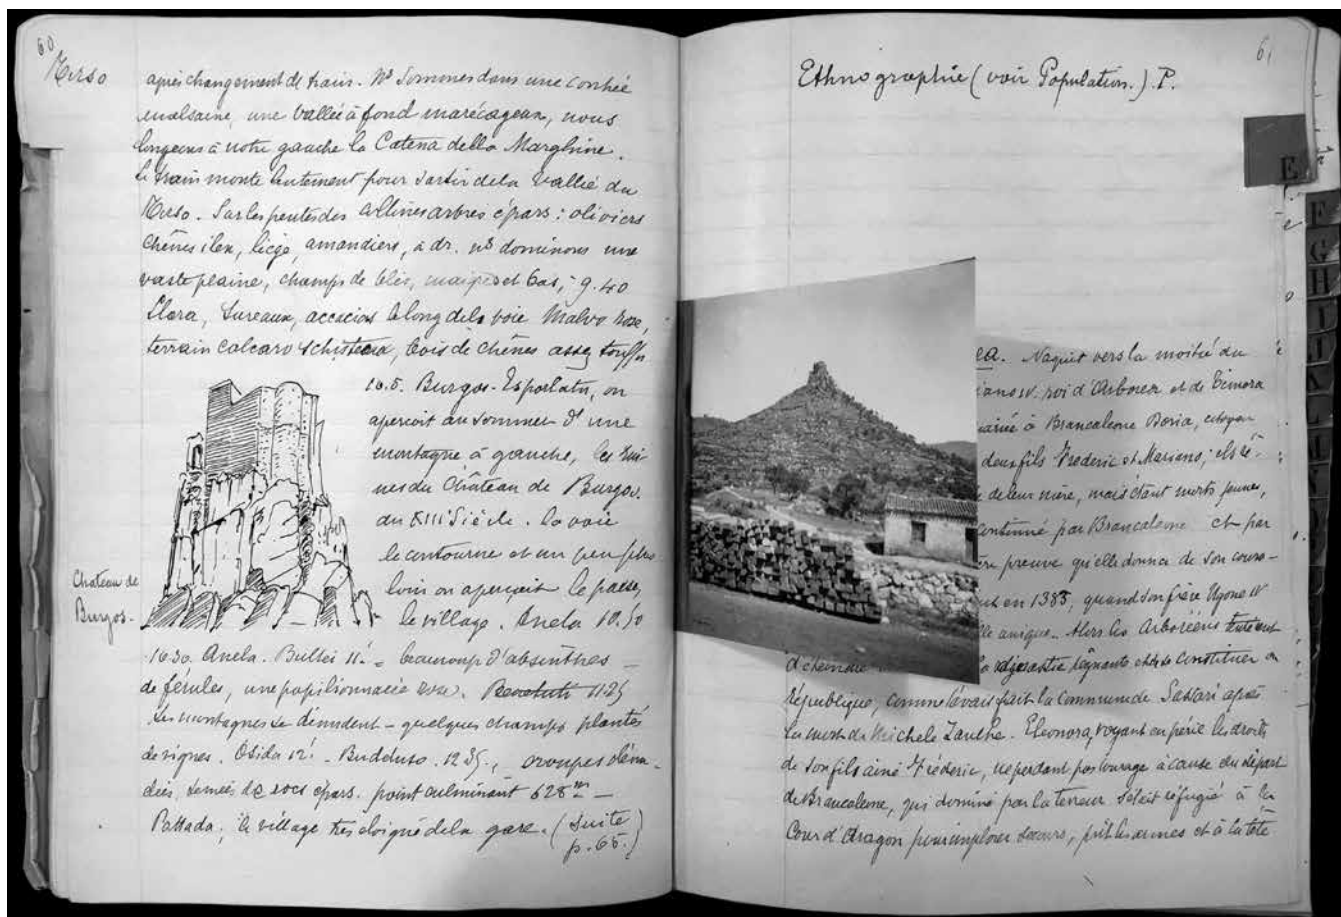 60
Tirso
après changement de train. Ns sommes dans une contrée
malsaine, une vallée à fond marécageux, nous
longeons à notre gauche la Catena della Marghine.
Le train monte lentement pour sortir de la vallée du
Tirso. Sur les pentes des collines arbres épars : oliviers
chênes ilex, liège, amandiers, à dr. ns dominons une
vaste plaine, champs de blés, maigres et bas, 9.40
Illora, Sureaux, accacias le long de la voie Malva rose,
terrain calcaro schisteux, bois de chênes assez touffu
10.5. Burgos-Esporlatu, on
aperçoit au sommet d'une
montagne à gauche, les rui-
nes du Château de Burgos.
du XIII Siècle. La voie
le contourne et un peu plus
loin on aperçoit le
le village. Anela 10.50
Chateau de
Burgos.
1630. Anela. Bultei 11. = beaucoup d'absinthes –
de férules, une papilionnacée rose. 1125
Les montagnes se dénudent – quelques champs plantés
de vignes. Osida 12. - Buddusò. 1235.,
semées de rocs épars. point culminant 628 m –
Pattada, le village très éloigné de la gare. (Suite
p. 65.)
61
Ethnographie (voir Population.) P.
E
F
G
H
I
ea. Naquit vers la moitié du
iano IV. roi d'Arborea et de Timora
mariée à Brancaleone Doria, citoyen
deux fils Frederic et Mariano; els ré-
de leur mère, mais étant morts jeunes,
continué par Brancaleone et par
ère preuve qu'elle donna de son coura-
ut en 1383, quand son frère Ugone IV
lle unique. Alors les Arboréens tentent
la dynastie régnante et de se constituer en
République, comme l'avait fait la Commune de Sassari après
la mort de Michele Zanche. Eleonora, voyant en péril les droits
de son fils ainé Fréderic, ne perdant pas courage à cause du départ
de Brancaleone, qui dominé par la terreur s'était réfugié à la
Cour d'Aragon pour implorer secours, prit les armes et à la tête